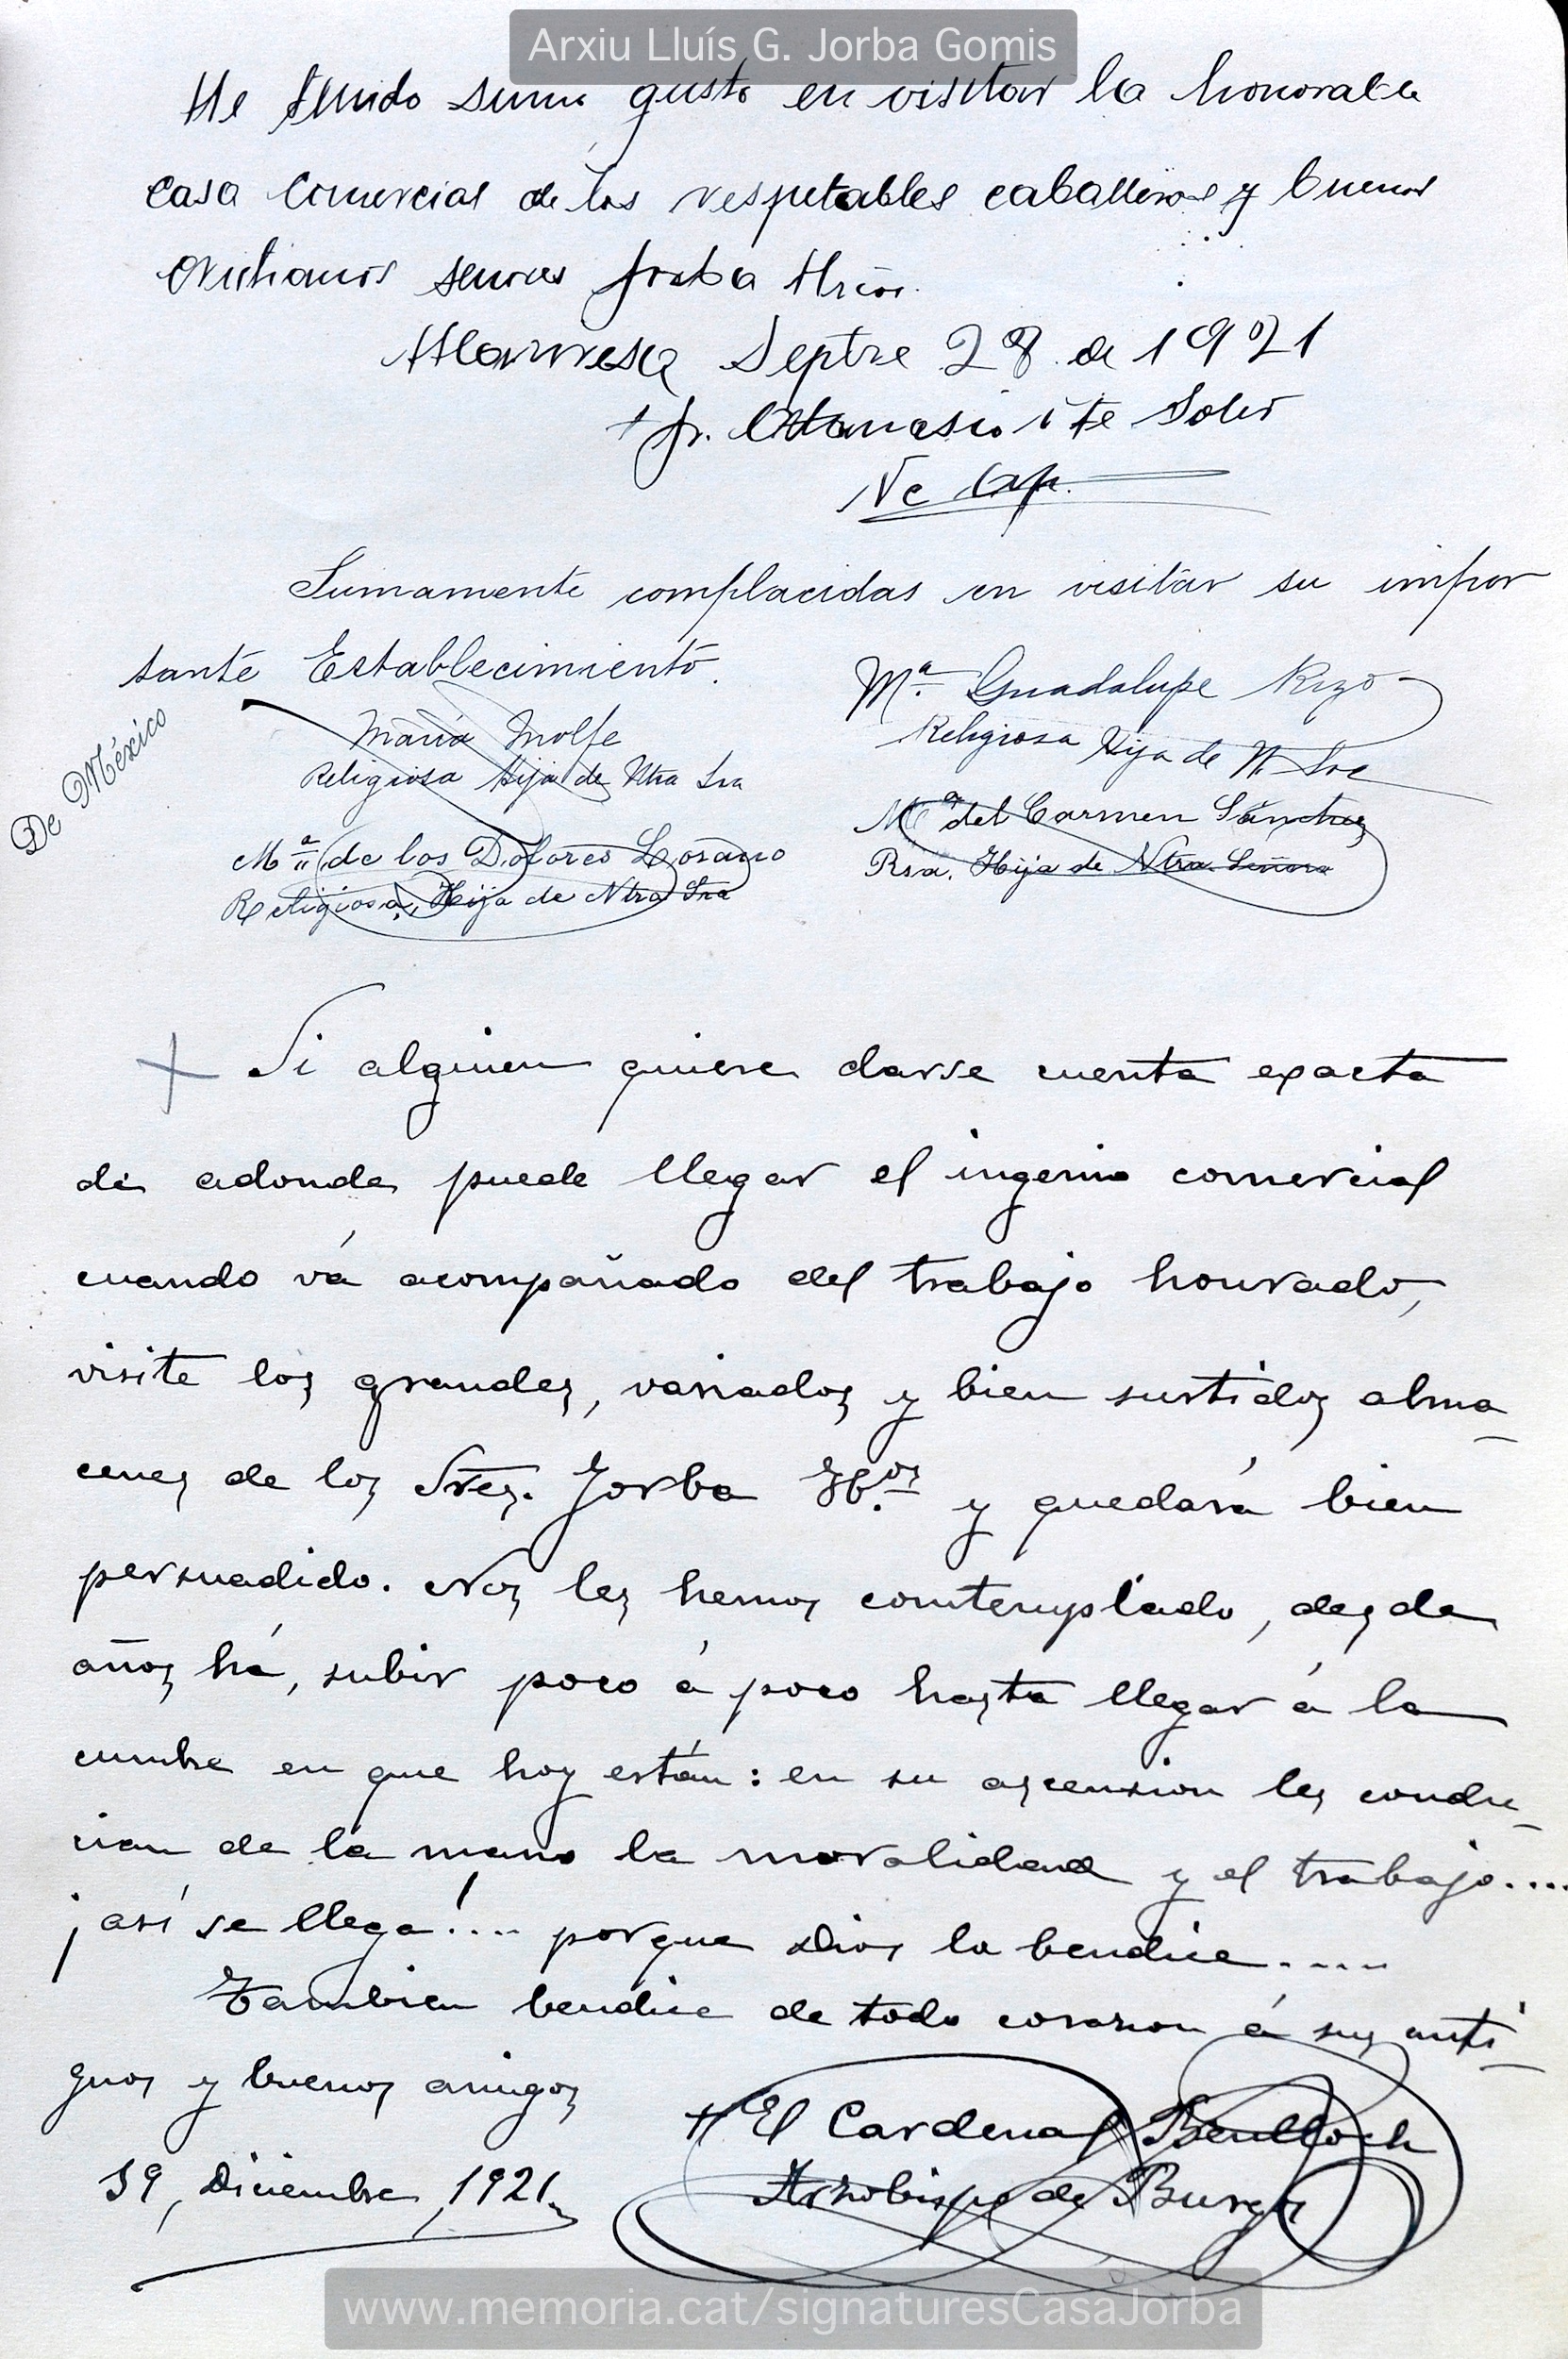 Arxiu Lluís G. Jorba Gomis
He tenido sumo gusto en visitar la honorable
casa comercial de los respetables caballeros y buenos
cristianos señores Jorba Hnos.
Manresa Septre 28 de 1921
+ Fr. Atanasio Vte Soler
Vc Cap.
Sumamente complacidas en visitar su impor
tante Establecimiento.
De México
María Molfe
Religiosa Hija de Ntra Sra
Mª de los Dolores Losano
Religiosa, Hija de Ntra Sra
Mª. Guadalupe Rizo
Religiosa Hija de N. Sra
Mª del Carmen Sánchez
Rsa. Hija de Ntra. Señora
+ Si alguien quiere darse cuenta exacta
de adonde puede llegar el ingenio comercial
cuando vá acompañado del trabajo honrado,
visite los grandes, variados y bien surtidos alma-
cenes de los Sres. Jorba H.os y quedará bien
persuadido. Nos les hemos contemplado, desde
años há, subir poco á poco hasta llegar á la
cumbre en que hoy están: en su ascension les condu-
cian de la mano la moralidad y el trabajo....
¡así se llega!.... porque Dios lo bendice.....
Tambien bendice de todo corazon á sus anti-
guos y buenos amigos
+ El Cardenal Benlloch
Arzobispo de Burgos
19, Diciembre, 1921
www.memoria.cat/signaturesCasaJorba